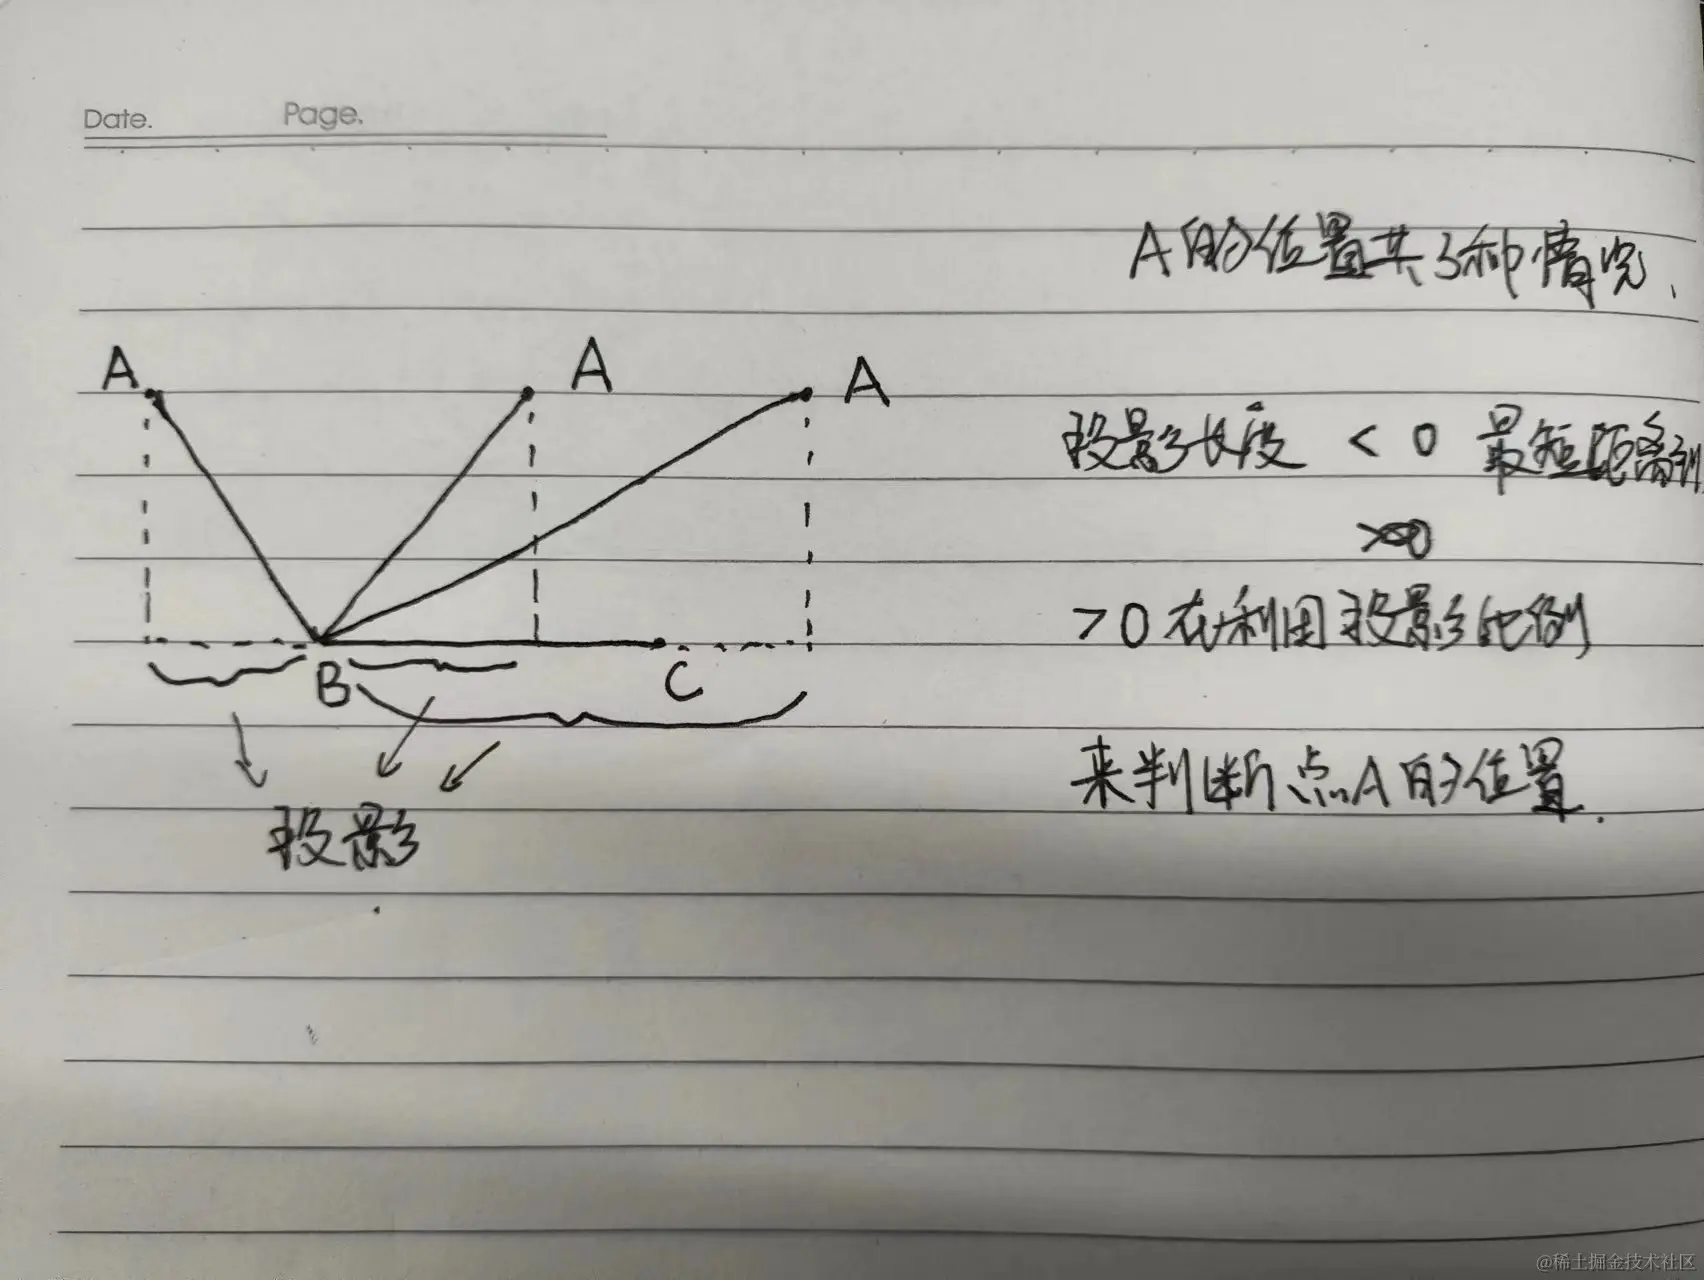 Date. Page.
A的位置共3种情况.
A A A
投影长度 < 0 最短距离
>0 在利用投影比例
B C
来判断点A的位置.
投影
@稀土掘金技术社区